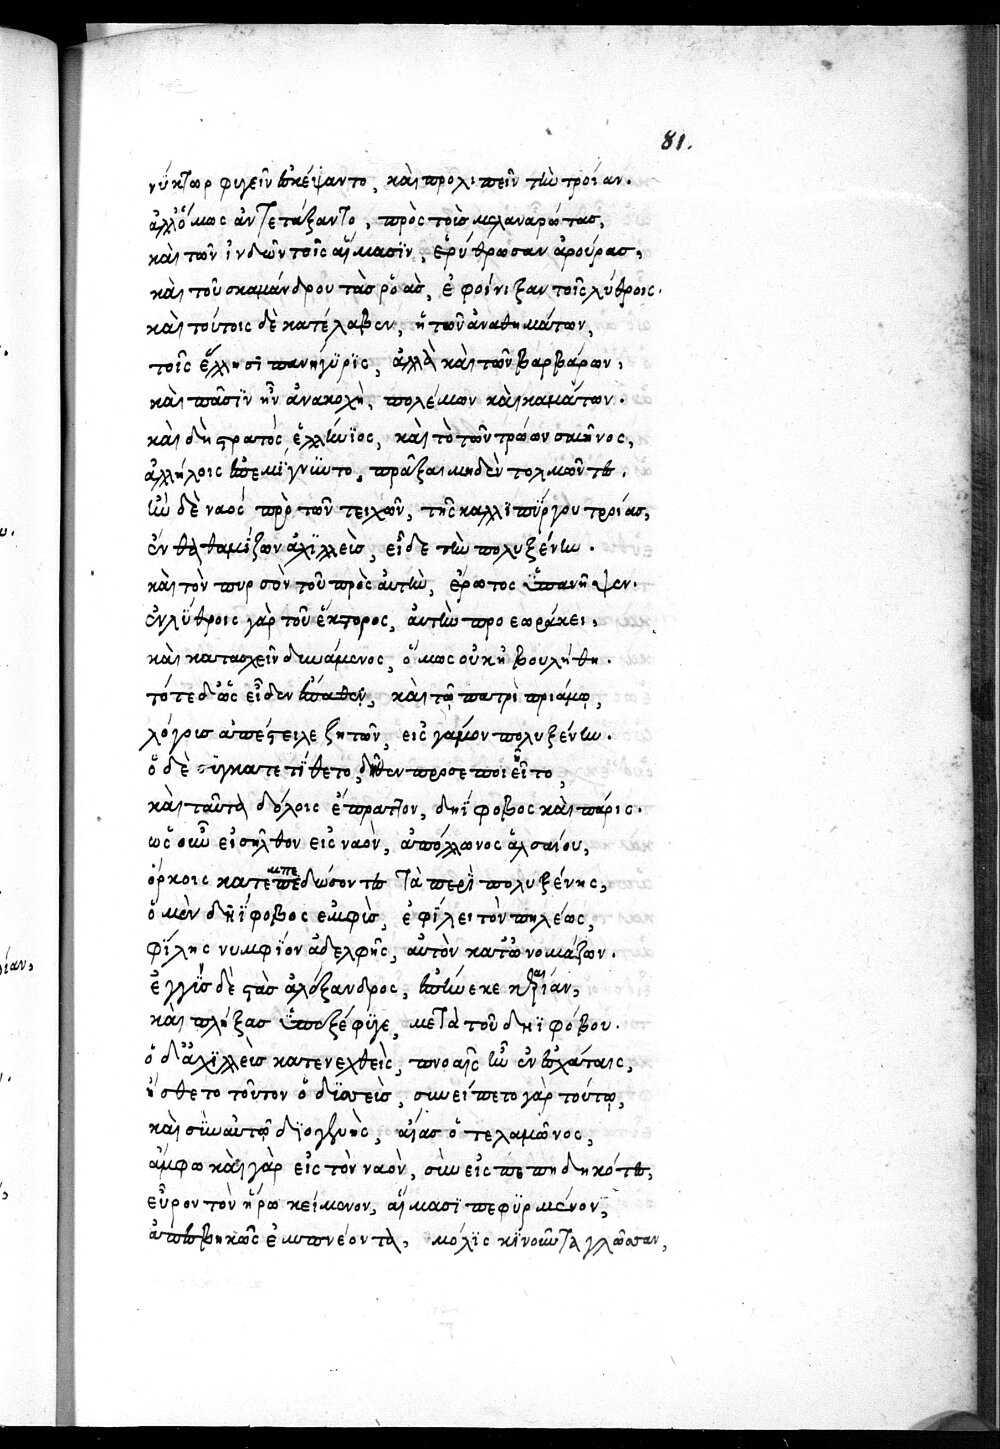 81.
νύκτωρ φυγεῖν ἐσκέψαντο, καὶ προλιπεῖν τὴν τροίαν.
ἀλλ' ὅμως ἀντετάξαντο, πρὸς τοὺς μελαναρώτας,
καὶ τῶν ἰνδῶν τοῖς αἵμασϊν, ἐρύθρωσαν ἀρούρας,
καὶ τοῦ σκαμάνδρου τὰς ῥοὰς, ἐφοίνιξαν τοῖς λύθροις.
καὶ τούτοις δὲ κατέλαβεν, ἡ τῶν ἀναθημάτων,
τοῖς ἕλλησϊ πανήγϋρϊς, ἀλλὰ καὶ τῶν βαρβάρων,
καὶ πᾶσϊν ἦν ἀνακοχὴ, πολέμων καὶ καμάτων.
καὶ δὴ στρατὸς ἑλλήνϊος, καὶ τὸ τῶν τρώων σμῆνος,
ἀλλήλοις ἐπεμίγνϋντο, πρᾶξαι μηδὲν τολμῶντες.
ἦν δὲ ναὸς πρὸ τῶν τειχῶν, τῆς καλλϊπύργου τροίας,
ἐν ᾧ θαμίζων ἀχϊλλεὺς, εἶδε τὴν πολυξένην.
καὶ τὸν πυρσὸν τοῦ πρὸς αὐτὴν, ἔρωτος ὑπανῆψεν.
ἐν λύθροις γὰρ τοῦ ἕκτορος, αὐτὴν προεωράκει,
καὶ κατασχεῖν δυνάμενος, ὅμως οὐκ ἠβουλήθη.
τότε δ' ὡς εἶδεν ἔπαθεν, καὶ τῷ πατρὶ πριάμῳ,
λόγους ἀπέστειλε ζητῶν, εἰς γάμον πολυξένην.
ὁ δὲ συγκατετίθετο, δῆθεν προσεποιεῖτο,
καὶ ταῦτα δόλοις ἔπραττον, δηΐφοβος καὶ πάρις.
ὡς οὖν εἰσῆλθον εἰς ναὸν, ἀπόλλωνος ἀλσαίου,
ὅρκοις κατεμπεδώσοντες τὰ περὶ πολυξένης,
ὁ μὲν δηΐφοβος ἐμφὺς, ἐφίλει τὸν πηλέως,
φίλης νυμφίον ἀδελφῆς, αὐτὸν κατωνομάζων.
ἐγγὺς δὲ στὰς ἀλέξανδρος,
καὶ πλήξας ὑπεξέφϋγε, μετὰ τοῦ δηϊφόβου.
ὁ δ' ἀχϊλλεὺς κατενεχθεὶς, πνοαῖς ἦν ἐν ἐσχάταις,
ᾔσθετο τοῦτον ὀδϋσσεὺς, συνείπετο γὰρ τούτῳ,
καὶ σὺν αὐτῷ δϊογενὴς, αἴας ὁ τελαμῶνος,
ἄμφω καὶ γὰρ εἰς τὸν ναὸν, συνεισπεπηδηκότες,
εὗρον τὸν ἥρω κείμενον, αἵμασϊ πεφϋρμένον,
ἀπεσβηκῶς ἐμπνέοντα, μόλϊς κϊνοῦντα γλῶσσαν,